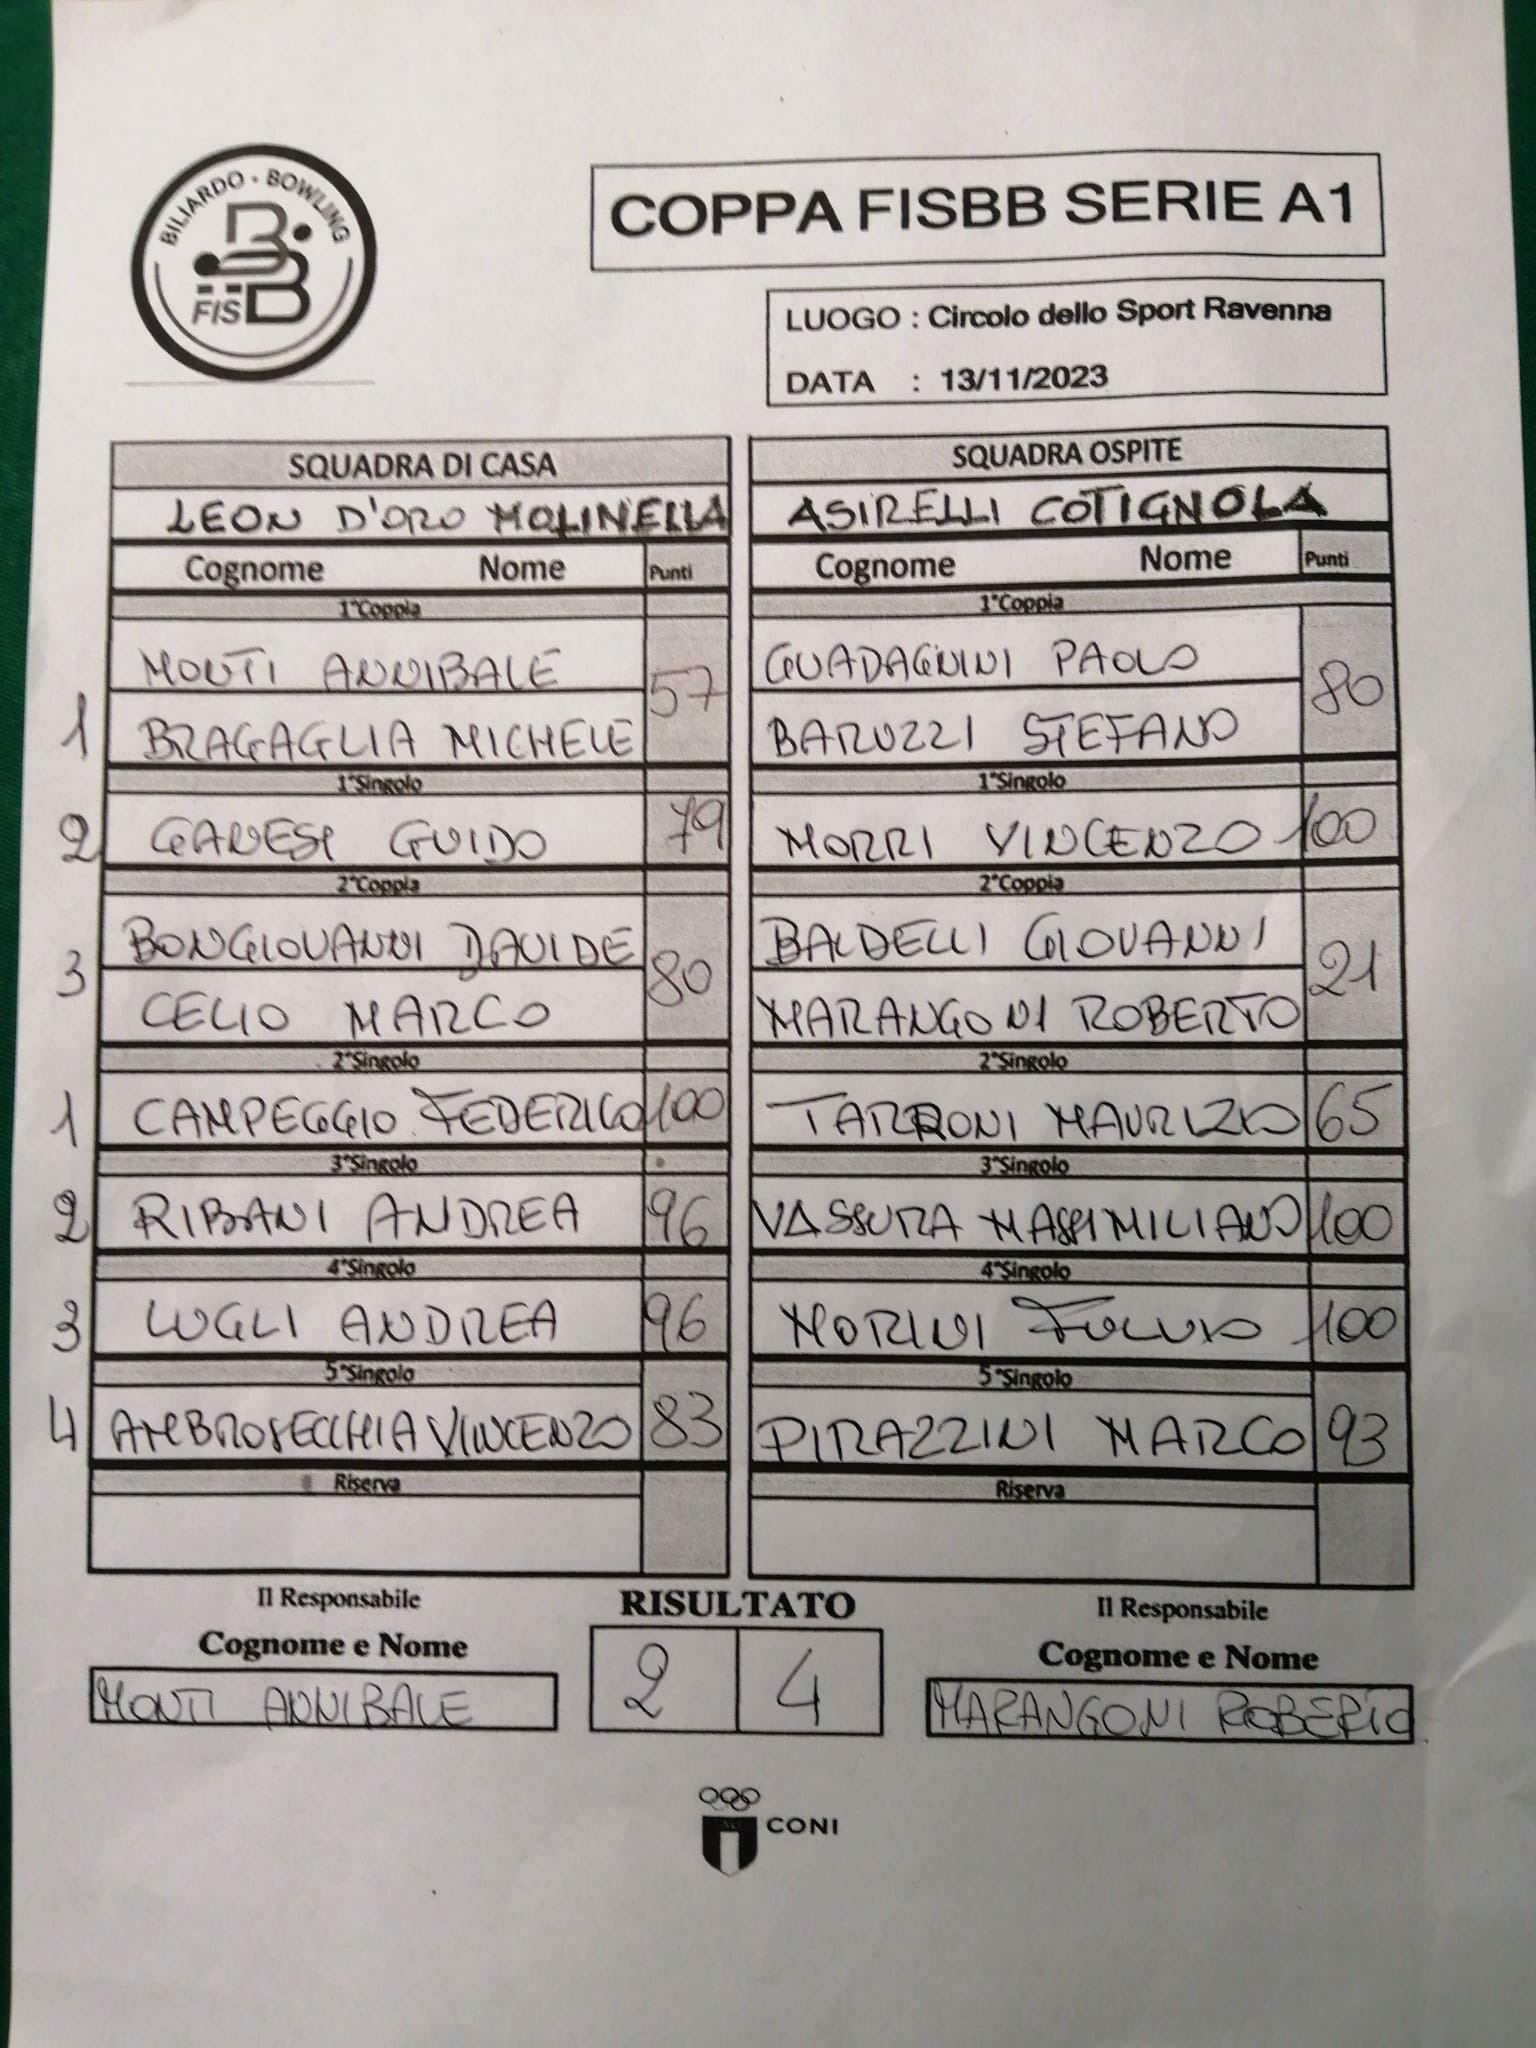 BILIARDO - BOWLING
FISBB
COPPA FISBB SERIE A1
LUOGO : Circolo dello Sport Ravenna
DATA : 13/11/2023
SQUADRA DI CASA
LEON D'ORO MOLINELLA
Cognome Nome Punti
1°Coppia
MONTI ANNIBALE
57
1 BRAGAGLIA MICHELE
1°Singolo
2 GANESI GUIDO 79
2°Coppia
BONGIOVANNI DAVIDE
3 80
CELIO MARCO
2°Singolo
1 CAMPEGGIO FEDERICO 100
3°Singolo
2 RIBANI ANDREA 96
4°Singolo
3 LUGLI ANDREA 96
5°Singolo
4 AMBROSECCHIA VINCENZO 83
Riserva
SQUADRA OSPITE
ASIRELLI COTIGNOLA
Cognome Nome Punti
1°Coppia
GUADAGNINI PAOLO
80
BARUZZI STEFANO
1°Singolo
MORRI VINCENZO 100
2°Coppia
BALDELLI GIOVANNI
21
MARANGONI ROBERTO
2°Singolo
TARRONI MAURIZIO 65
3°Singolo
VASSURA MASSIMILIANO 100
4°Singolo
MORINI FULVIO 100
5°Singolo
PIRAZZINI MARCO 93
Riserva
Il Responsabile
Cognome e Nome
MONTI ANNIBALE
RISULTATO
2 4
Il Responsabile
Cognome e Nome
MARANGONI ROBERTO
CONI